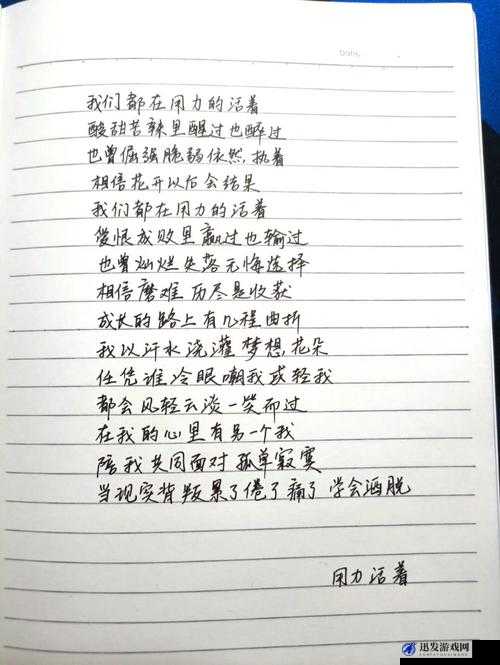 我们都在用力的活着
酸甜苦辣里醒过也醉过
也曾倔强脆弱依然执着
相信花开以后会结果
我们都在用力的活着
爱恨成败里赢过也输过
也曾灿烂失落无悔选择
相信磨难历尽是收获
成长的路上有几程曲折
我以汗水浇灌梦想花朵
任凭谁冷眼嘲我或轻我
都会风轻云淡一笑而过
在我的心里有另一个我
陪我共同面对孤单寂寞
当现实背叛累了倦了痛了 学会洒脱
用力活着
迅发游戏网